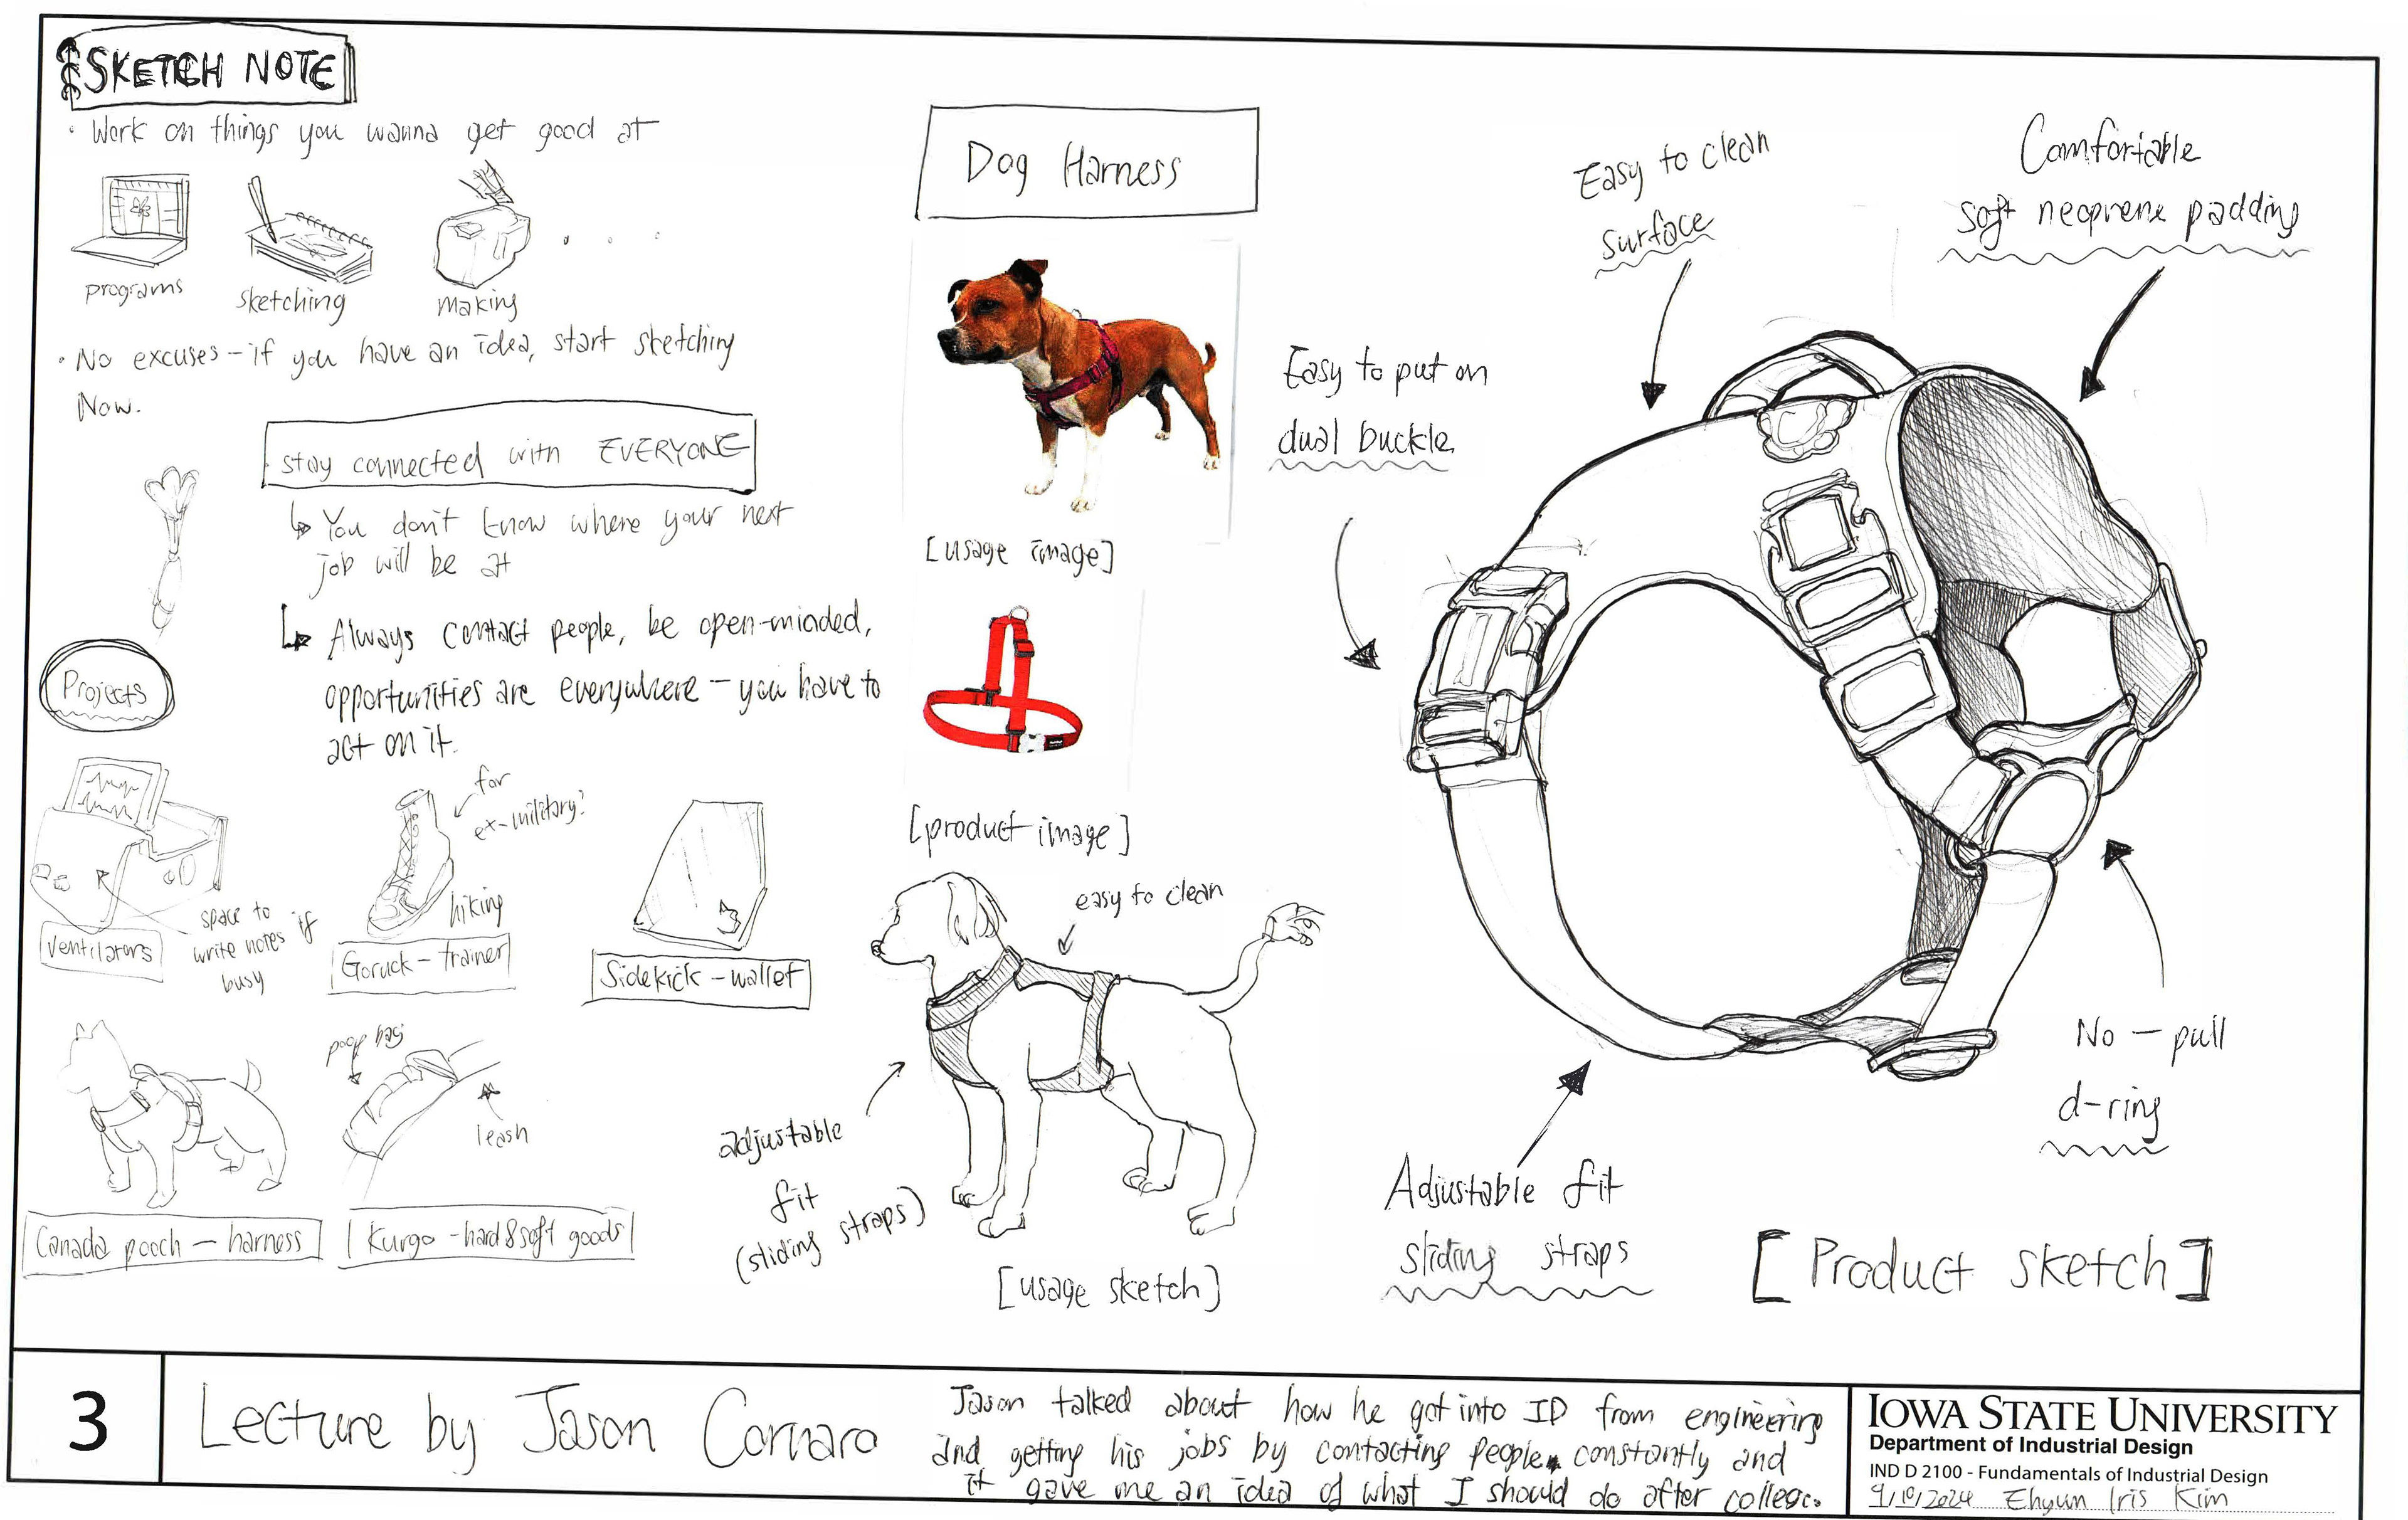 SKETCH NOTE
• Work on things you wanna get good at
programs
sketching
making
• No excuses - if you have an idea, start sketching
Now.
stay connected with EVERYONE
↳ You don't know where your next
job will be at
↳ Always contact people, be open-minded,
opportunities are everywhere - you have to
act on it.
Projects
ventilators
space to
write notes if
busy
for
ex-military?
hiking
Goruck - trainer
Sidekick - wallet
Canada pooch - harness
poop bag
leash
Kurgo - hard & soft goods
Dog Harness
[usage image]
[product image]
easy to clean
adjustable
fit
(sliding straps)
[usage sketch]
Easy to clean
surface
Comfortable
soft neoprene padding
Easy to put on
dual buckle
No - pull
d-ring
Adjustable fit
sliding straps
[Product sketch]
3
Lecture by Jason Cornaro
Jason talked about how he got into ID from engineering
and getting his jobs by contacting people constantly and
it gave me an idea of what I should do after college.
IOWA STATE UNIVERSITY
Department of Industrial Design
IND D 2100 - Fundamentals of Industrial Design
9/10/2024 Ehyun Iris Kim